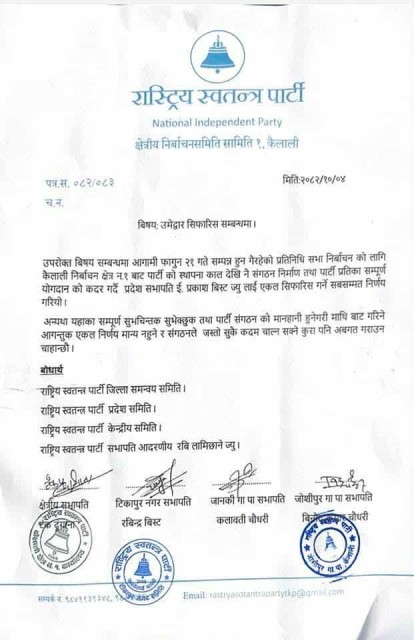 रास्ट्रिय स्वतन्त्र पार्टी
National Independent Party
क्षेत्रीय निर्बाचनसमिति सामिति १, कैलाली
पत्र.स. ०८२/०८३
मिति:२०८२/१०/०४
च.न.
बिषय: उमेद्वार सिफारिस सम्बन्धमा।
उपरोक्त बिषय सम्बन्धमा आगामी फागुन २१ गते सम्पन्न हुन गैरहेको प्रतिनिधि सभा निर्बाचन को लागि
कैलाली निर्बाचन क्षेत्र न.१ बाट पार्टी को स्थापना काल देखि नै संगठन निर्माण तथा पार्टी प्रतिका सम्पूर्ण
योगदान को कदर गर्दै प्रदेश सभापति ई. प्रकाश बिस्ट ज्यु लाई एकल सिफारिस गर्ने सबसम्मत निर्णय
गरियो।
अन्यथा यहाका सम्पूर्ण सुभचिन्तक सुभेच्छुक तथा पार्टी संगठन को मानहानी हुनेगरी माथि बाट गरिने
आगन्तुक एकल निर्णय मान्य नहुने र संगठनले जस्तो सुकै कदम चाल्न सक्ने कुरा पनि अबगत गराउन
चाहान्छौ।
बोधार्थ
राष्ट्रिय स्वतन्त्र पार्टी जिल्ला समन्वय समिति।
राष्ट्रिय स्वतन्त्र पार्टी प्रदेश समिति।
राष्ट्रिय स्वतन्त्र पार्टी केन्द्रीय समिति।
राष्ट्रिय स्वतन्त्र पार्टी सभापति आदरणीय रबि लामिछाने ज्यु।
क्षेत्रीय सभापति टिकापुर नगर सभापति जानकी गा पा सभापति जोशीपुर गा पा सभापति
रबिन्द्र बिस्ट कलावती चौधरी चौधरी
राष्ट्रिय स्वतन्त्र पार्टी
सम्पर्क न. Email: rastryasotantrapartytkp@gmail.com